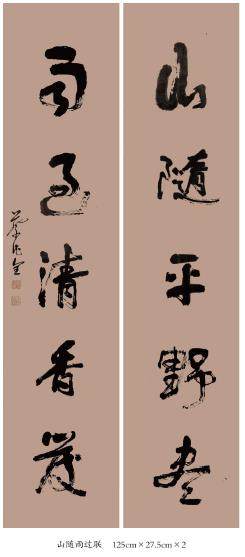 山隨平野盡
雨過清香發
山随雨过联 125cm×27.5cm×2